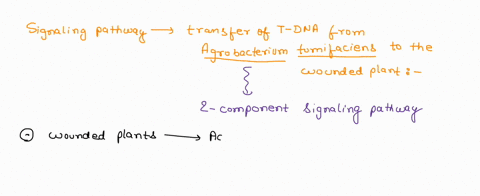 Signaling pathway → transfer of T-DNA from
Agrobacterium tumifaciens to the
wounded plant :-
2-component signaling pathway
⊖ wounded plants → Ac